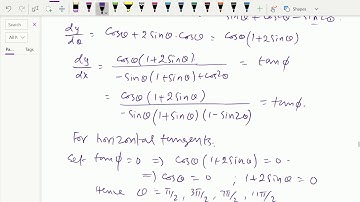 Shapes
dy/dθ = Cosθ + 2Sinθ·Cosθ = Cosθ(1+2Sinθ)
dy/dx = Cosθ(1+2Sinθ) / -Sinθ(1+Sinθ)+Cos²θ = tanφ
= Cosθ(1+2Sinθ) / -Sinθ(1+Sinθ)(1-Sin2θ) = tanφ.
For horizontal tangents.
Set tanφ = 0 ⇒ Cosθ(1+2Sinθ) = 0
⇒ Cosθ = 0 ; 1+2Sinθ = 0
Hence θ = π/2, 3π/2, 7π/2, 11π/2